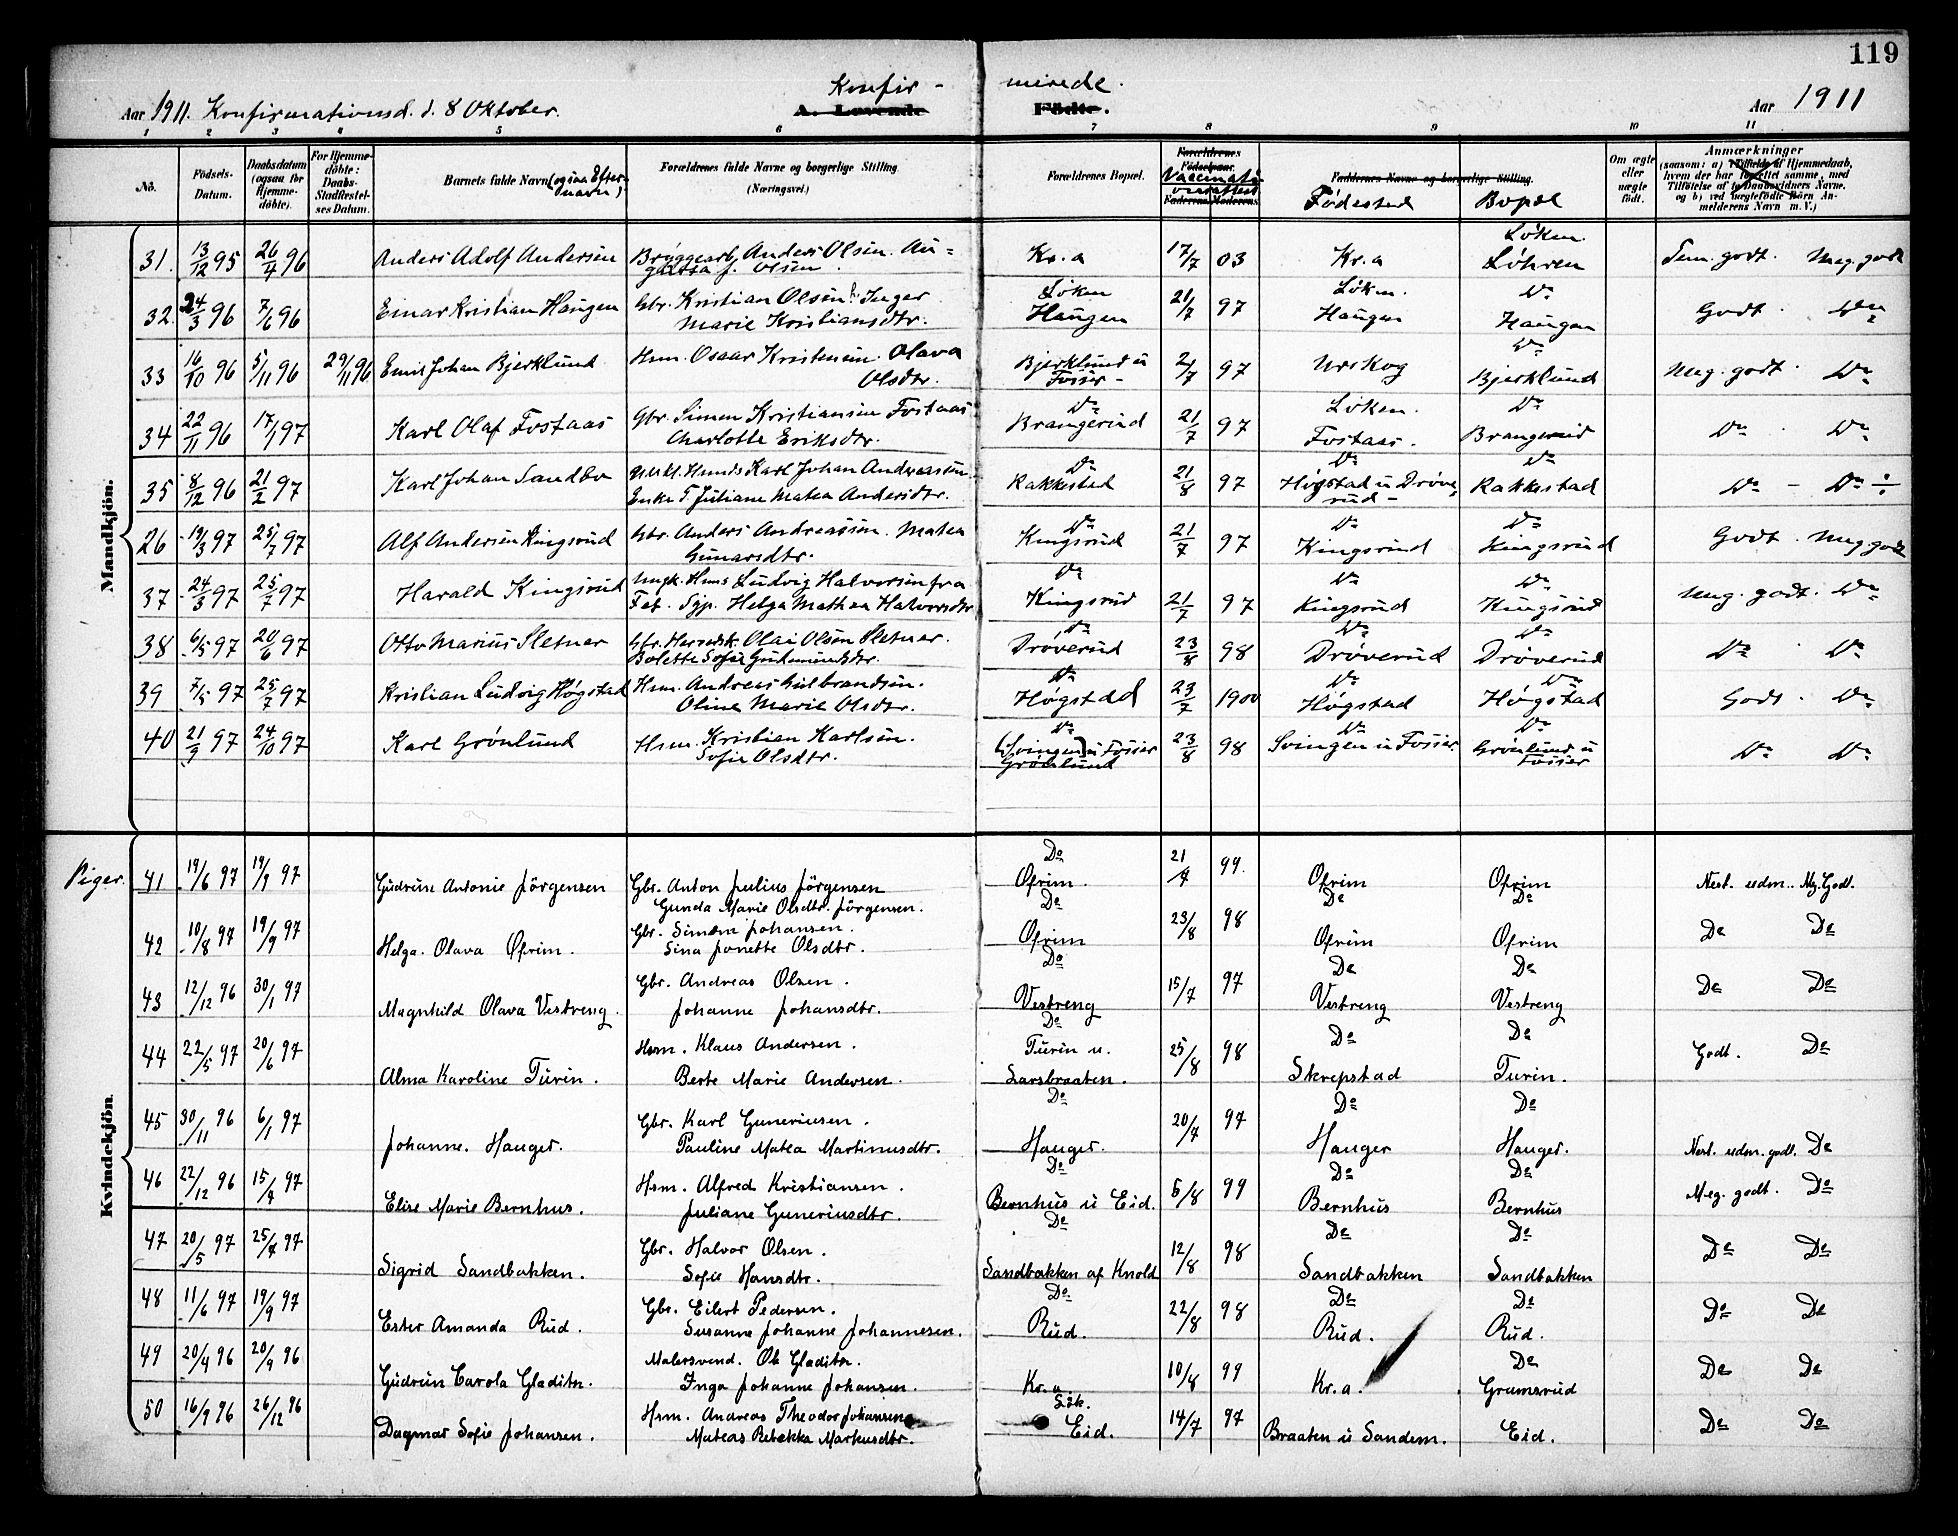 119
Konfir - mirede.
Aar 1911. Konfirmationsd. d. 8 Oktober. A. Levende Födte. Aar 1911
1 2 3 4 5 6 7 8 9 10 11
No. Födsels-Datum. Daabsdatum (ogsaa for Hjemme-döbte). For Hjemme-döbte: Daabs-Stadfæstel-ses Datum. Barnets fulde Navn (ogsaa Efter-navn) Forældrenes fulde Navne og borgerlige Stilling (Næringsvei.) Forældrenes Bopæl. Forældrenes Födselsaar. Faderens Moderens Vaccinati- Faddernes Navne og borgerlige Stilling. Födested Bopæl Om ægte eller uægte födt. Anmærkninger
Mandkjön.
31. 13/12 95 26/4 96 Anders Adolf Andersen Bryggearb. Anders Olsen. Au-gusta f. Olsen. Kr.a 17/7 03 Kr.a Löken. Löhren Tem. godt. Meg. godt
32. 24/3 96 7/6 96 Einar Kristian Haugen Gbr. Kristian Olsen. Inger Marie Kristiansdtr. Löken Haugen 21/7 97 Löken. Haugen Do Haugen Godt. Do
33 16/10 96 5/11 96 29/11 96 Emil Johan Bjerklund Hsm. Oscar Kristensen. Olava Olsdtr. Bjerklund u Fosser- 2/7 97 Urskog Do Bjerklund Meg. godt. Do
34 22/11 96 17/1 97 Karl Olaf Fostaas Gbr. Simen Kristiansen Fostaas Charlotte Eriksdtr. Do Brangerud 21/7 97 Löken. Fostaas. Do Brangerud Do. Do
35 8/12 96 21/2 97 Karl Johan Sandbo Karl Johan Andreassen. Enke F. Juliane Matea Andersdtr. Do Rakkestad 21/8 97 Do Högstad u Dröve-rud- Do Rakkestad Do - Do
26 19/3 97 25/7 97 Alf Andersen Kingsrud Gbr. Anders Andreassen. Matea Gunarsdtr. Do Kingsrud 21/7 97 Do Kingsrud Do Kingsrud Godt. Meg godt
37 24/3 97 25/7 97 Harald Kingsrud Ungk. Hans Ludvig Halvorsen fra Fet. Sgp. Helga Mathea Halvorsdtr Do Kingsrud 21/7 97 Do Kingsrud Do Kingsrud Meg. godt. Do
38 6/5 97 20/6 97 Otto Marius Sletner Gbr. Herredsk. Olai Olsen Sletner. Bolette Sofie Gudmundsdtr. Do Dröverud 23/8 98 Do Dröverud Do Dröverud Do. Do
39 7/5 97 25/7 97 Kristian Ludvig Högstad Hsm. Andreas Gulbrandsen. Oline Marie Olsdtr. Do Högstad 23/7 1900 Do Högstad Do Högstad Godt. Do
40 21/9 97 24/10 97 Karl Grönlund Hsm. Kristian Karlsen. Sofie Olsdtr. Do (Svingen) u Fosser Grönlund 23/8 98 Do Svingen u Fosser Do Grönlund u Fosser Do Do
Piger.
Kvindekjön.
41 19/6 97 19/9 97 Gudrun Antonie Jörgensen Gbr. Anton Julius Jörgensen Gunda Marie Olsdtr. Jörgensen. Do Ofrim. 21/7 99. Ofrim Ofrim Nest. udm. Mg. Godt.
42 10/8 97 19/9 97 Helga. Olava Ofrim. Gbr. Simen Johansen. Sina Jonette Olsdtr. Do Ofrim 23/8 98 Do Ofrim Do Ofrim Do Do
43 12/12 96 30/1 97 Magnhild Olava Vestreng. Gbr. Andreas Olsen. Johanne Johansdtr. Do Vestreng 15/7 97 Do Vestreng Do Vestreng Do Do
44 22/5 97 20/6 97 Alma Karoline Turin. Hsm. Klaus Andersen. Berte Marie Andersen. Do Turin u. Larsbraaten. 25/8 98 Do Skrepstad Do Turin. Godt. Do
45 30/11 96 6/1 97 Johanne. Hauger. Gbr. Karl Guneriusen. Pauline Matea Martinusdtr. Do Hauger. 20/7 97 Do Hauger Do Hauger. Nest. udm. godt. Do
46 22/12 96 15/7 97 Elise Marie Bernhus. Hsm. Alfred Kristiansen. Juliane Guneriusdtr. Do Bernhus u Eid. 5/8 99 Do Bernhus Do Bernhus Meg. godt. Do
47 20/5 97 25/7 97 Sigrid Sandbakken. Gbr. Halvor Olsen. Sofie Hansdtr. Do Sandbakken af Knold 12/8 98 Do Sandbakken Do Sandbakken Do Do
48 11/6 97 19/9 97 Ester Amanda Rud. Gbr. Eilert Pedersen. Susanne Johanne Johannesen. Do Rud. 22/8 98 Do Rud. Do Rud. Do Do
49 20/4 96 20/9 96 Gudrun Carola Gladitn. Malersvend. Ole Gladitn. Inga Johanne Johansen. Kr.a. 10/8 99 Kr.a. Do Gramsrud Do Do
50 16/9 96 26/12 96 Dagmar Sofie Johansen. Hsm. Andreas Theodor Johansen Mateas Rebekka Markusdtr. Lök. Eid. 14/7 97 Braaten u Sandem. Eid. Do Do